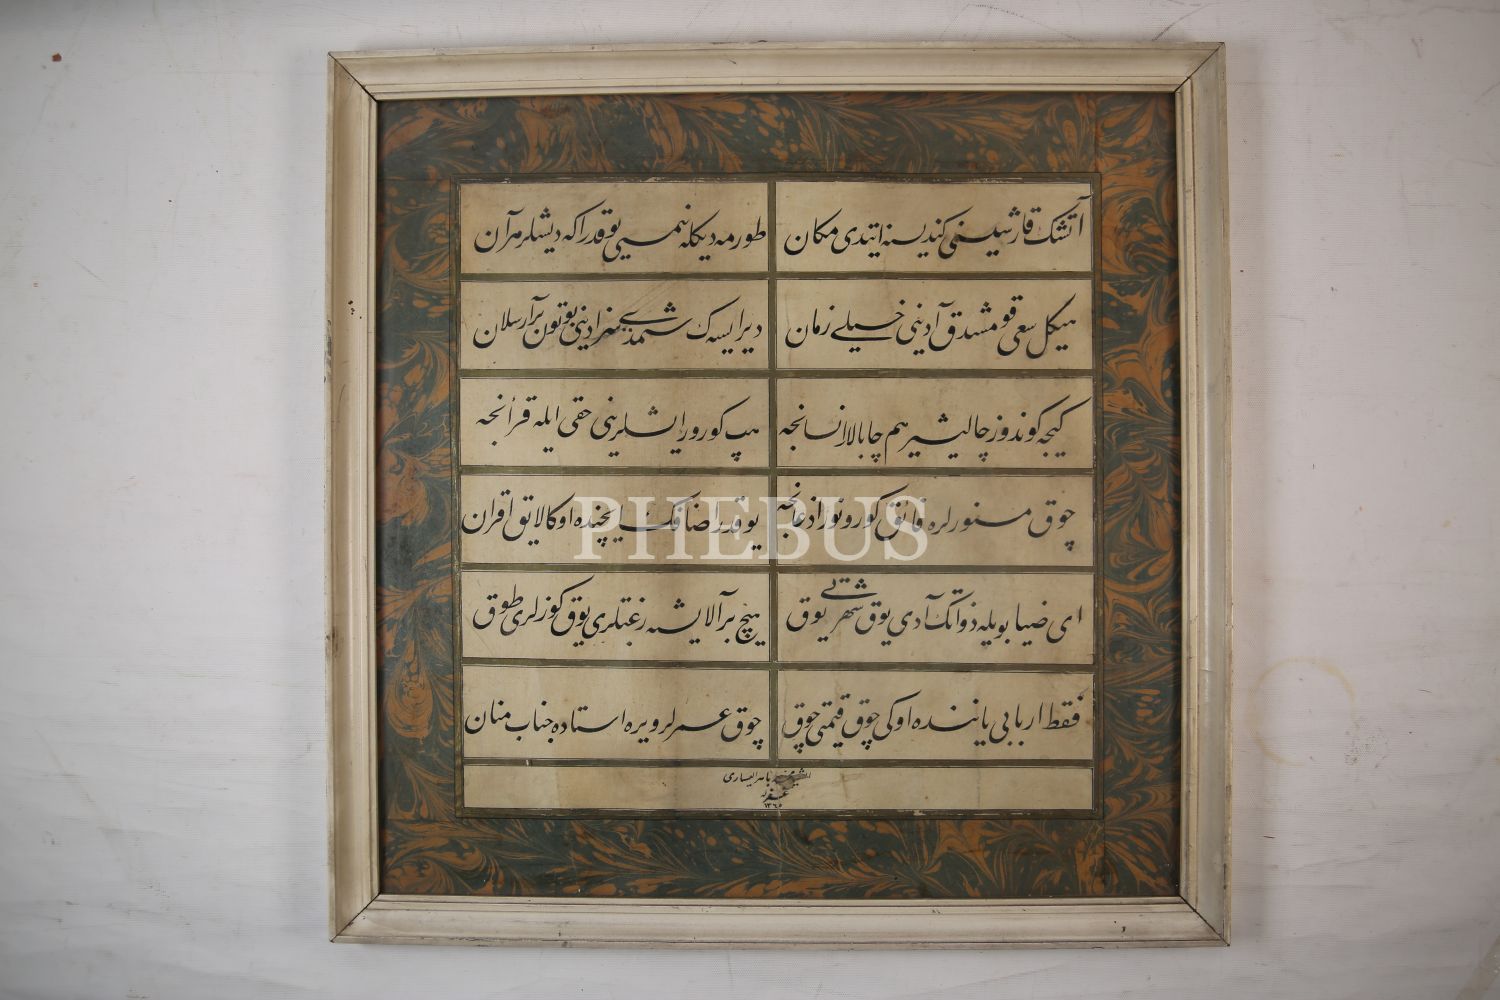 آتشك قارشیسنی كندیسنه ایتدی مكان
طورمه دیكله نیمیی یوقدراكه دیشلر هرآن
هیكل سعی قومشدق آدینی خیلی زمان
دیرایسه‌ك شمدی سزادینی بوتون برآرسلان
كیجه كوندوز چالیشیر هم چابالار انسانجه
هپ كورور ایشلرینی حقی ایله قرأنجه
چوق مسنورلره فائق كورونور اذعانجه
یوقدر اضافك ایچنده اوكا لایق اقران
ای ضیا بویله ذواتك آدی یوق شهرتی یوق
هیچ بر آلایشه رغبتلری یوق كوزلری طوق
فقط اربابی یاننده اوكی چوق قیمتی چوق
چوق عمرلر ویره استاده جناب منان
محمد باهر الیساری
غفرله
PHEBUS